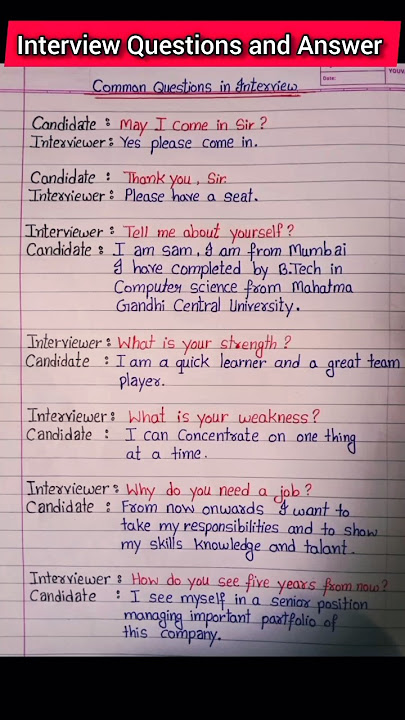 Interview Questions and Answer
Date:
YOUVA
Common Questions in Interview
Candidate : May I come in Sir ?
Interviewer : Yes please come in.
Candidate : Thank you, Sir.
Interviewer : Please have a seat.
Interviewer : Tell me about yourself ?
Candidate : I am sam, I am from Mumbai
I have completed by B.Tech in
Computer science from Mahatma
Gandhi Central University.
Interviewer : What is your strength ?
Candidate : I am a quick learner and a great team
player.
Interviewer : What is your weakness ?
Candidate : I can Concentrate on one thing
at a time.
Interviewer : Why do you need a job ?
Candidate : From now onwards I want to
take my responsibilities and to show
my skills knowledge and talant.
Interviewer : How do you see five years from now ?
Candidate : I see myself in a senior position
managing important partfolio of
this company.